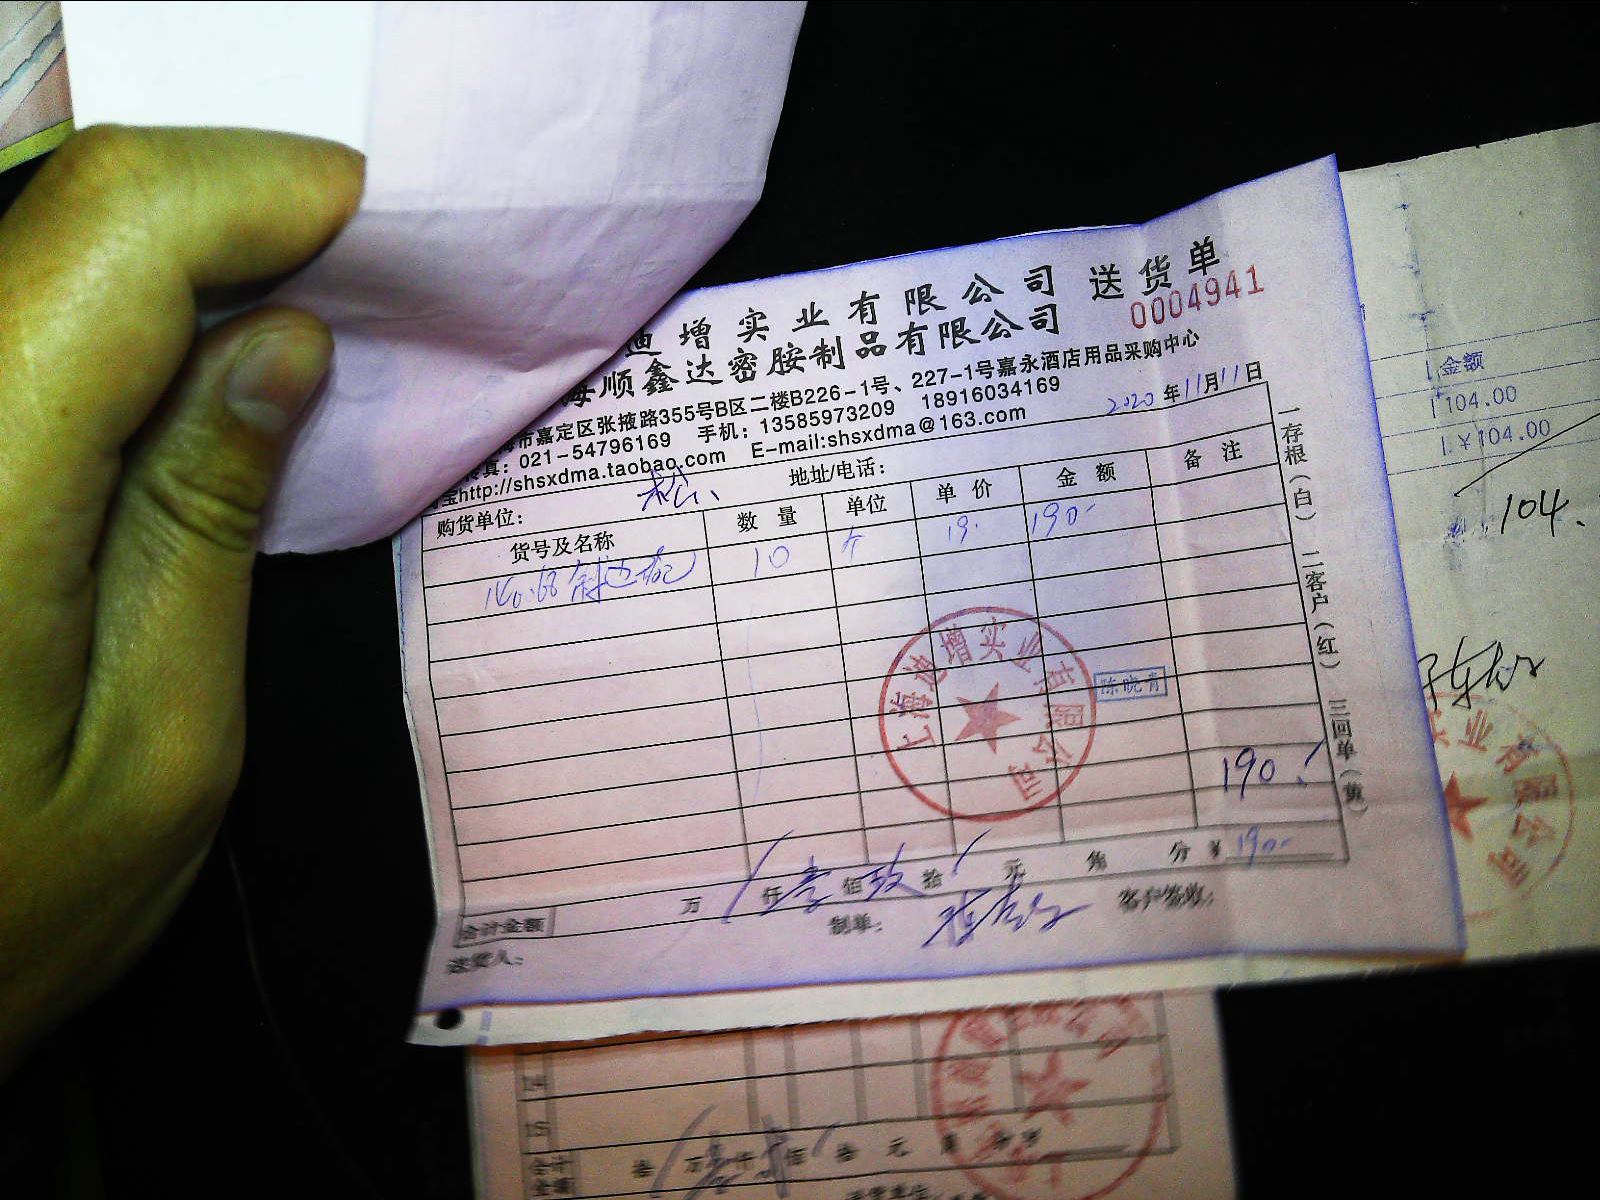 迪增实业有限公司 送货单
海顺鑫达密胺制品有限公司 0004941
市嘉定区张掖路355号B区二楼B226-1号、227-1号嘉永酒店用品采购中心
真：021-54796169 手机：13585973209 18916034169
宝http://shsxdma.taobao.com E-mail:shsxdma@163.com 2020年11月11日
购货单位： 地址/电话：
货号及名称 数量 单位 单价 金额 备注
斜边碗 10 个 19. 190-
上海迪增实业有限公司
陈晓青
190.
合计金额 万 仟 壹 佰 玖 拾 元 角 分 ¥ 190-
送货人： 制单： 客户签收：
一存根（白） 二客户（红） 三回单（黄）
金额
104.00
¥104.00
104.
实业有限公司
14
15
合计
金额
拾 万 仟 佰 拾 元